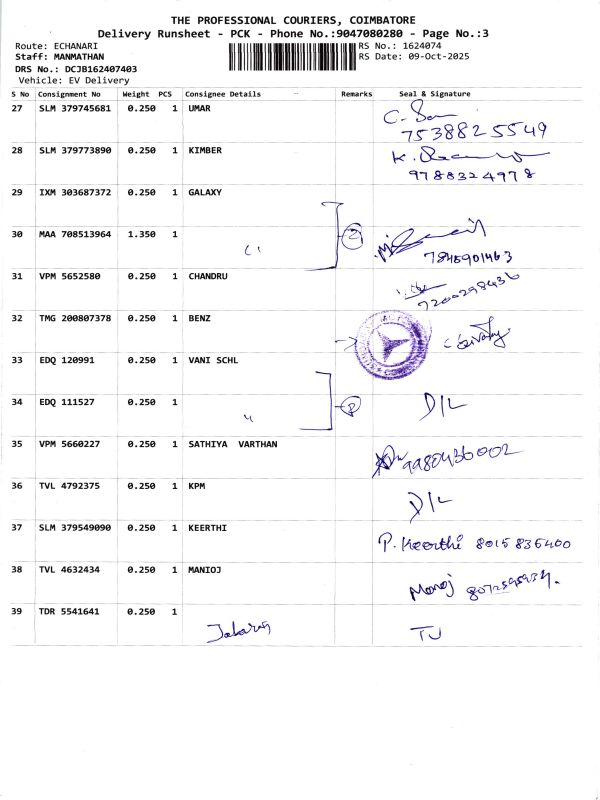 THE PROFESSIONAL COURIERS, COIMBATORE
Delivery Runsheet - PCK - Phone No.:9047080280 - Page No.:3
Route: ECHANARI RS No.: 1624074
Staff: MANMATHAN RS Date: 09-Oct-2025
DRS No.: DCJB162407403
Vehicle: EV Delivery
S No Consignment No Weight PCS Consignee Details Remarks Seal & Signature
27 SLM 379745681 0.250 1 UMAR
7538825549
28 SLM 379773890 0.250 1 KIMBER
9788324978
29 IXM 303687372 0.250 1 GALAXY
30 MAA 708513964 1.350 1
7845901463
31 VPM 5652580 0.250 1 CHANDRU
7200298436
32 TMG 200807378 0.250 1 BENZ
33 EDQ 120991 0.250 1 VANI SCHL
34 EDQ 111527 0.250 1 D/L
35 VPM 5660227 0.250 1 SATHIYA VARTHAN
9980436002
36 TVL 4792375 0.250 1 KPM
D/L
37 SLM 379549090 0.250 1 KEERTHI
P. Keerthi 8015836400
38 TVL 4632434 0.250 1 MANIOJ
Manoj
39 TDR 5541641 0.250 1
TJ